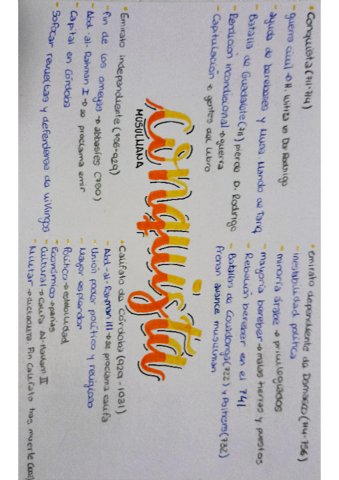 Conquista (711-714)
- guerra civil → A. Witiza vs Dn Rodrigo
- ayuda de bereberes y Muza. Mando de Tariq
- Batalla de Guadalete (711) pierde D. Rodrigo
- Rendición incondicional → guerra
- Capitulación → gentes del libro
Emirato dependiente de Damasco (714-756)
- inestabilidad política
- minoría árabe → privilegiados
- mayoría bereber → malas tierras y puestos
- Rebelión bereber en el 741
- Batallas de Covadonga (722) y Poitiers (732)
frenan avance musulmán
Conquista
MUSULMANA
Emirato independiente (756-929)
- Fin de los omeyas → abbasíes (750)
- Abd-al-Rahman I → se proclama emir
- Capital en Córdoba
- Sofocar revueltas y defenderse de vikingos
Califato de Córdoba (929-1031)
- Abd-al-Rahman III → se proclama califa
- Unión poder político y religioso
- Mayor esplendor
- Político → estabilidad
- Económico → parias
- Cultural → califa Al-Hakam II
- Militar → dictadura. Fin califato tras muerte